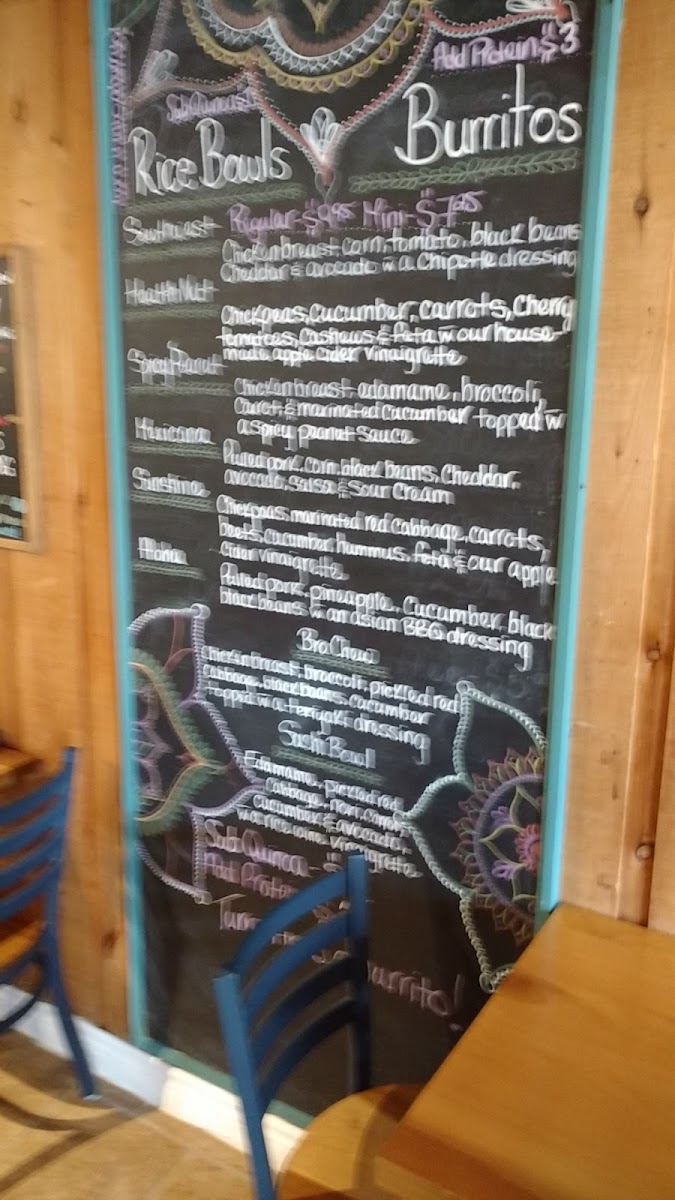 Add Protein $3
Sub Quinoa $1
Rice Bowls
Burritos
Southwest
Regular-$9.95 Mini-$7.95
Chicken breast, corn, tomato, black beans
Cheddar & avocado w a Chipotle dressing
Health Nut
Chickpeas, Cucumber, carrots, Cherry
tomatoes, Cashews & Feta w our house
made apple Cider vinaigrette
Spicy Peanut
Chicken breast, edamame, broccoli,
Carrot & marinated Cucumber topped w
a spicy peanut Sauce
Mexicana
Pulled pork, corn, black beans, Cheddar,
avocado, salsa & Sour Cream
Sunshine
Chickpeas, marinated red cabbage, carrots,
beets, cucumber, hummus, feta & our apple
Cider vinaigrette
Aloha
Pulled pork, pineapple, Cucumber, black
black beans w an asian BBQ dressing
Bra Chew
Chicken breast, broccoli, pickled red
cabbage, black beans, cucumber
topped w a teriyaki dressing
Sushi Bowl
Edamame, pickled red
Cabbage, nori, carrot,
cucumber & avocado,
w a rice wine vinaigrette
Sub Quinoa
Add Protein
burrito!